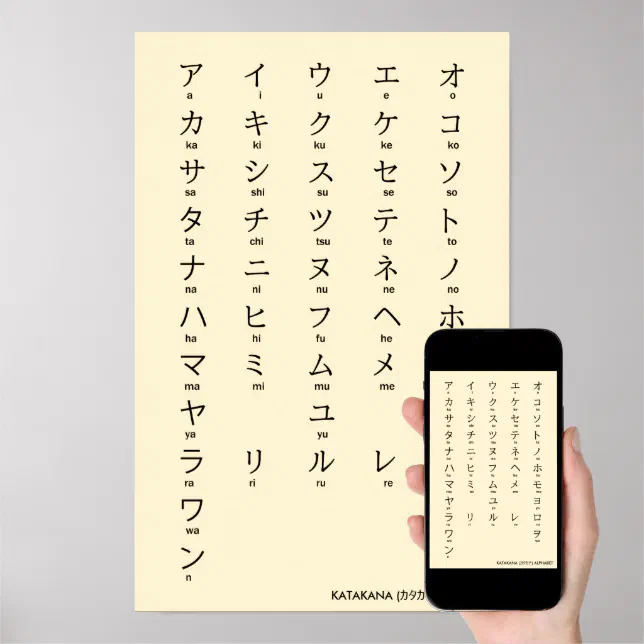 ア イ ウ エ オ
a i u e o
カ キ ク ケ コ
ka ki ku ke ko
サ シ ス セ ソ
sa shi su se so
タ チ ツ テ ト
ta chi tsu te to
ナ ニ ヌ ネ ノ
na ni nu ne no
ハ ヒ フ ヘ ホ
ha hi fu he
マ ミ ム メ
ma mi mu me
ヤ ユ
ya yu
ラ リ ル レ
ra ri ru re
ワ
wa
ン
n
KATAKANA (カタカ
ア イ ウ エ オ
カ キ ク ケ コ
サ シ ス セ ソ
タ チ ツ テ ト
ナ ニ ヌ ネ ノ
ハ ヒ フ ヘ ホ
マ ミ ム メ モ
ヤ ユ ヨ
ラ リ ル レ ロ
ワ ヲ
ン
KATAKANA (カタカナ) ALPHABET